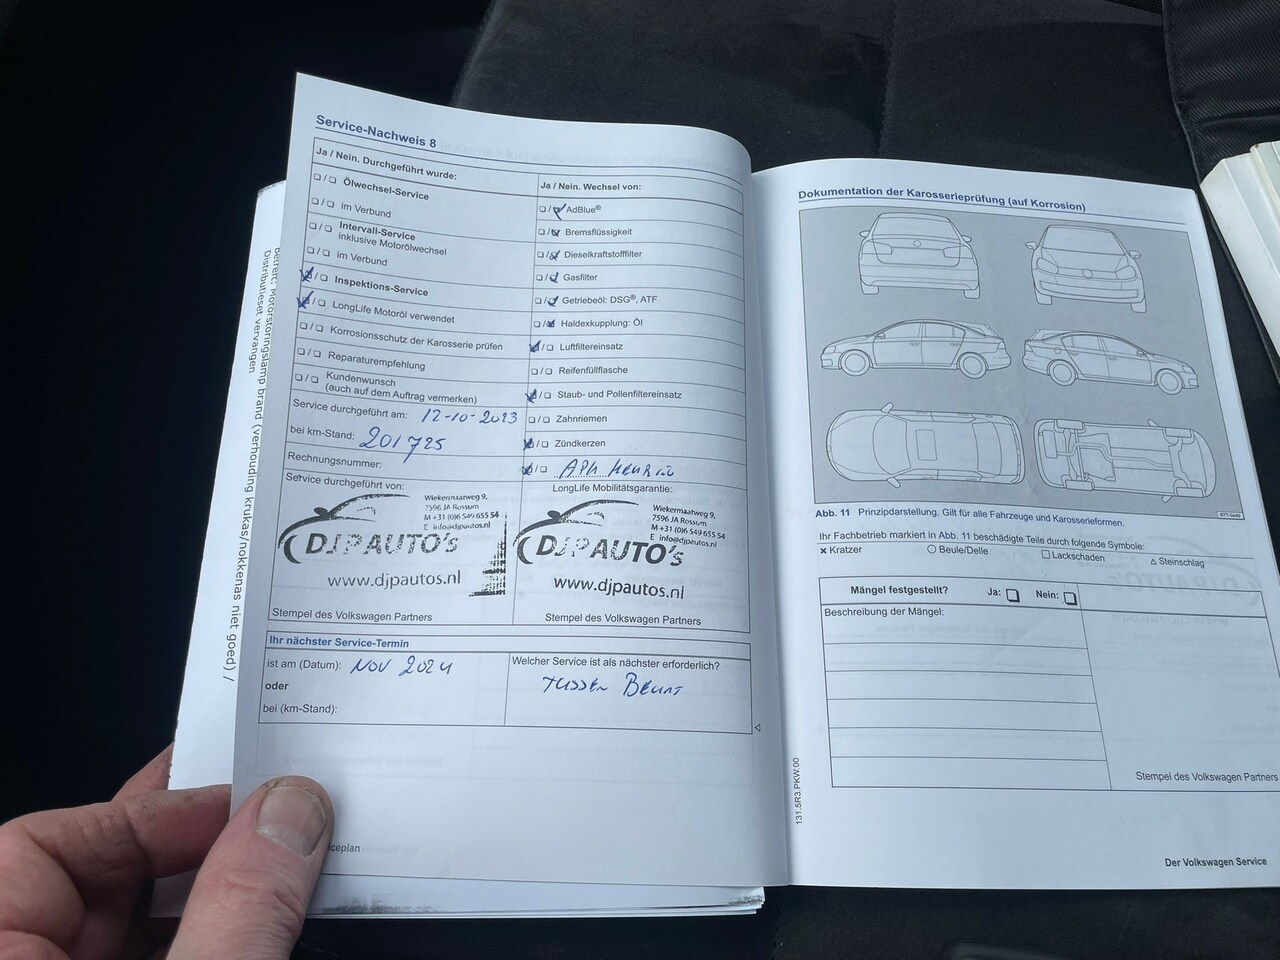 Service-Nachweis 8
Ja / Nein. Durchgeführt wurde:
Ölwechsel-Service
im Verbund
Intervall-Service
inklusive Motorölwechsel
im Verbund
Inspektions-Service
LongLife Motoröl verwendet
Korrosionsschutz der Karosserie prüfen
Reparaturempfehlung
Kundenwunsch
(auch auf dem Auftrag vermerken)
Service durchgeführt am: 12-10-2023
bei km-Stand: 201725
Rechnungsnummer:
Ja / Nein. Wechsel von:
AdBlue®
Bremsflüssigkeit
Dieselkraftstofffilter
Gasfilter
Getriebeöl: DSG®, ATF
Haldexkupplung: Öl
Luftfiltereinsatz
Reifenfüllflasche
Staub- und Pollenfiltereinsatz
Zahnriemen
Zündkerzen
APK
Service durchgeführt von:
Wiekermaatweg 9,
7596 JA Rossum
M +31 (0)6 549 655 54
E info@djpautos.nl
DJPAUTO's
www.djpautos.nl
Stempel des Volkswagen Partners
LongLife Mobilitätsgarantie:
Wiekermaatweg 9,
7596 JA Rossum
M +31 (0)6 549 655 54
E info@djpautos.nl
DJPAUTO's
www.djpautos.nl
Stempel des Volkswagen Partners
Ihr nächster Service-Termin
ist am (Datum): NOV 2024
oder
bei (km-Stand):
Welcher Service ist als nächster erforderlich?
TUSSEN BEURT
ceplan
Betreft: Motorstoringslamp brand (verhouding krukas/nokkenas niet goed) /
Distributieset vervangen
Dokumentation der Karosserieprüfung (auf Korrosion)
Abb. 11 Prinzipdarstellung. Gilt für alle Fahrzeuge und Karosserieformen.
Ihr Fachbetrieb markiert in Abb. 11 beschädigte Teile durch folgende Symbole:
× Kratzer
Beule/Delle
Lackschaden
Steinschlag
Mängel festgestellt? Ja: Nein:
Beschreibung der Mängel:
Stempel des Volkswagen Partners
131.5R3.PKW.00
Der Volkswagen Service